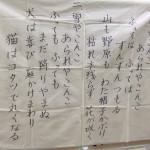 あられやこんこ
ふっては ふっては
ずんずんつもる
山も野原も 綿帽子かぶり
枯れ木残らず 花が咲く
二 雪やこんこ
あられやこんこ
ふっても ふっても
まだ降りやまぬ
犬は喜び 庭かけまわり
猫はコタツで丸くなる